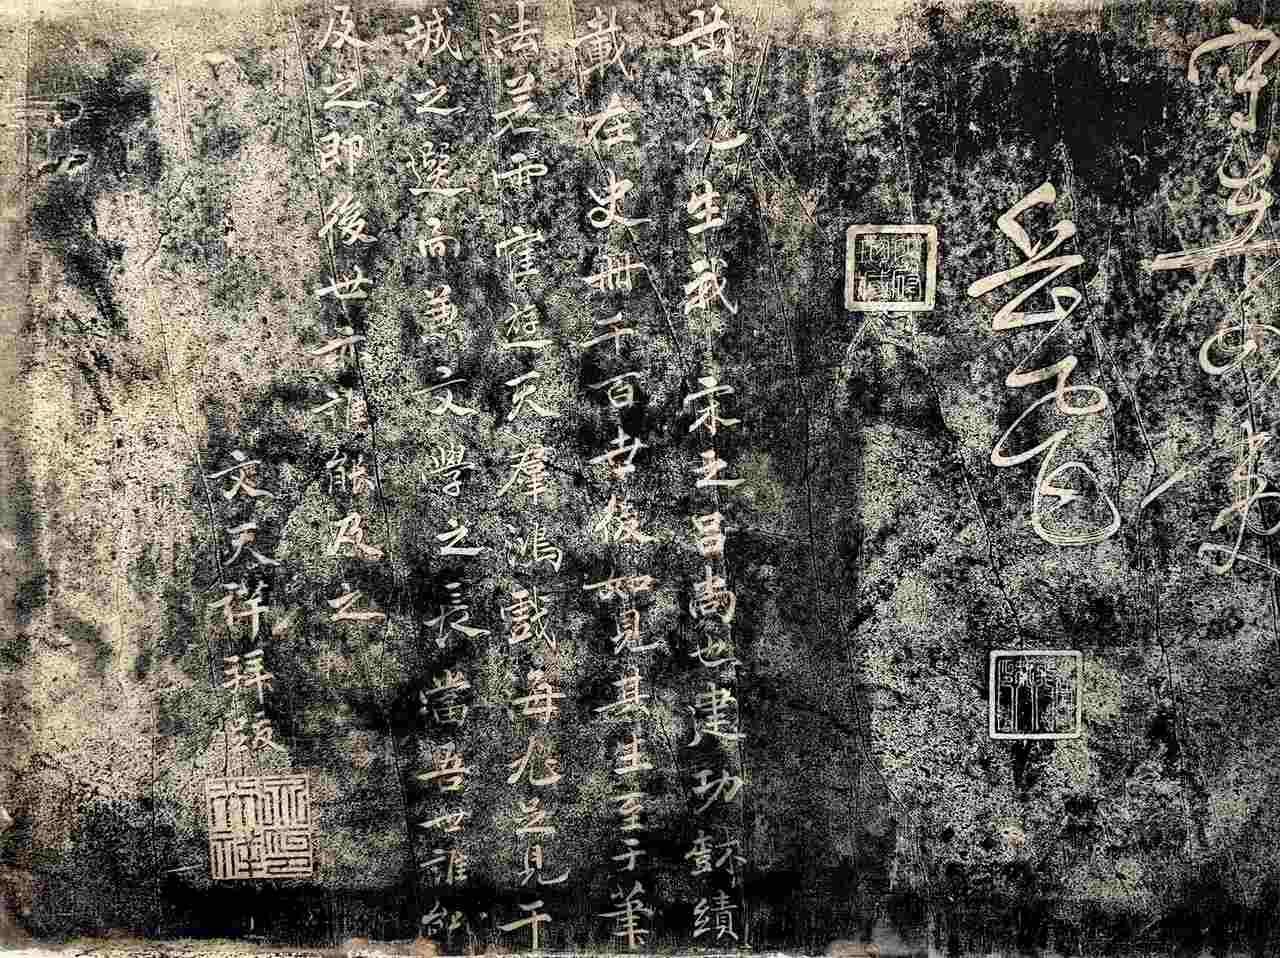 岳飛
岳先生我宋之呂尚也建功樹績
載在史冊千百世後如見其生至于筆
法若雲鶴遊天羣鴻戲海尤足見干
城之選而兼文學之長當吾世誰能
及之即後世亦誰能及之
文天祥拜跋